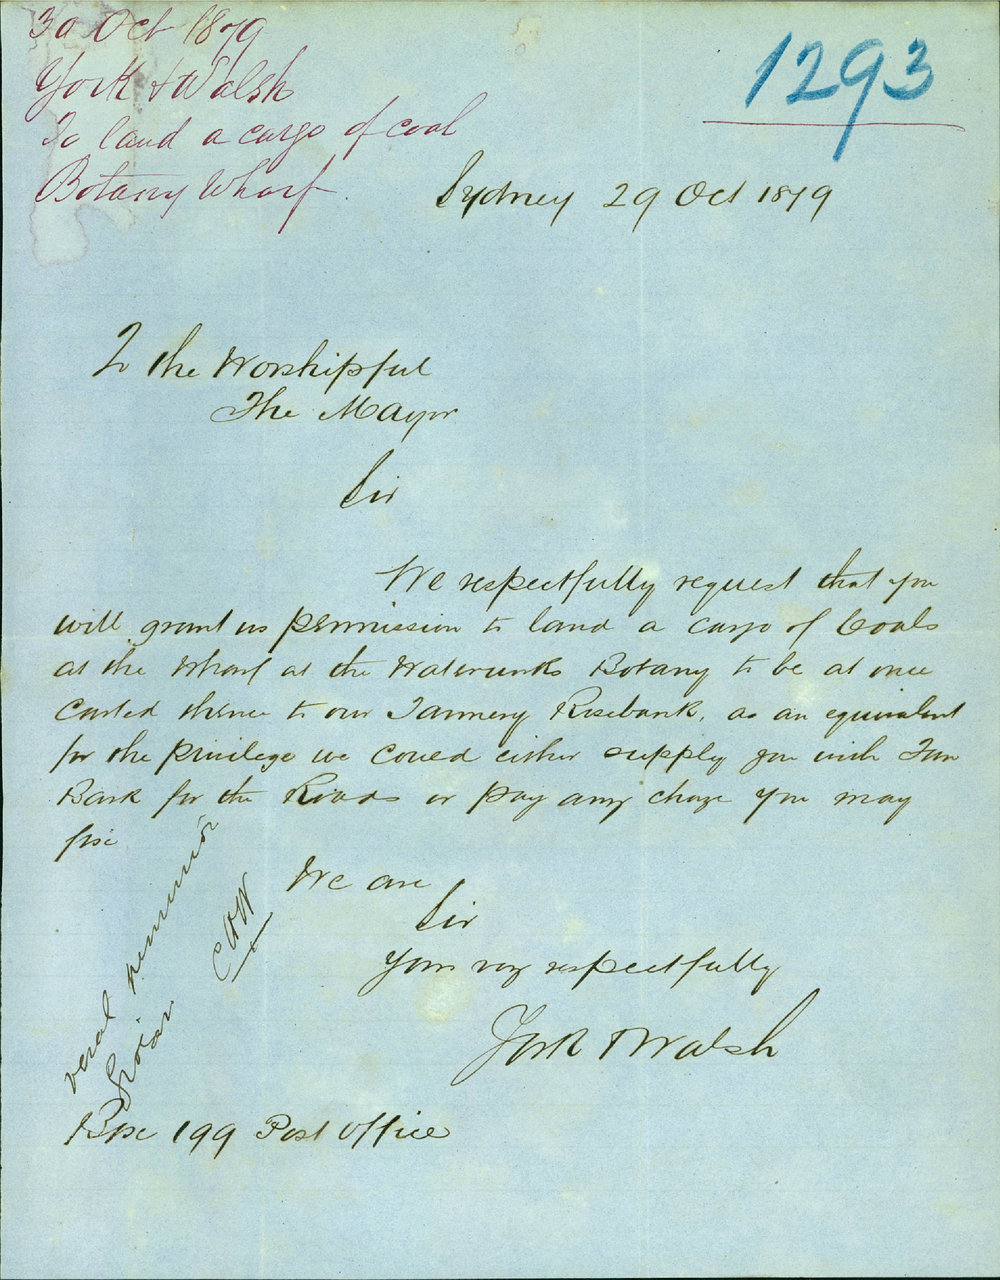 30 Oct 1879
York & Walsh
To land a cargo of coal
Botany Wharf
1293
Sydney 29 Oct 1879
To the Worshipful
The Mayor
Sir
We respectfully request that you
will grant us permission to land a cargo of Coals
at the Wharf at the Waterworks Botany to be at once
carted thence to our Tannery Rosebank, as an equivalent
for the privilege we could either supply you with Tan
Bark for the Roads or pay any charge you may
fix
We are
Sir
Your very respectfully
York & Walsh
verbal permission
given
Box 199 Post Office